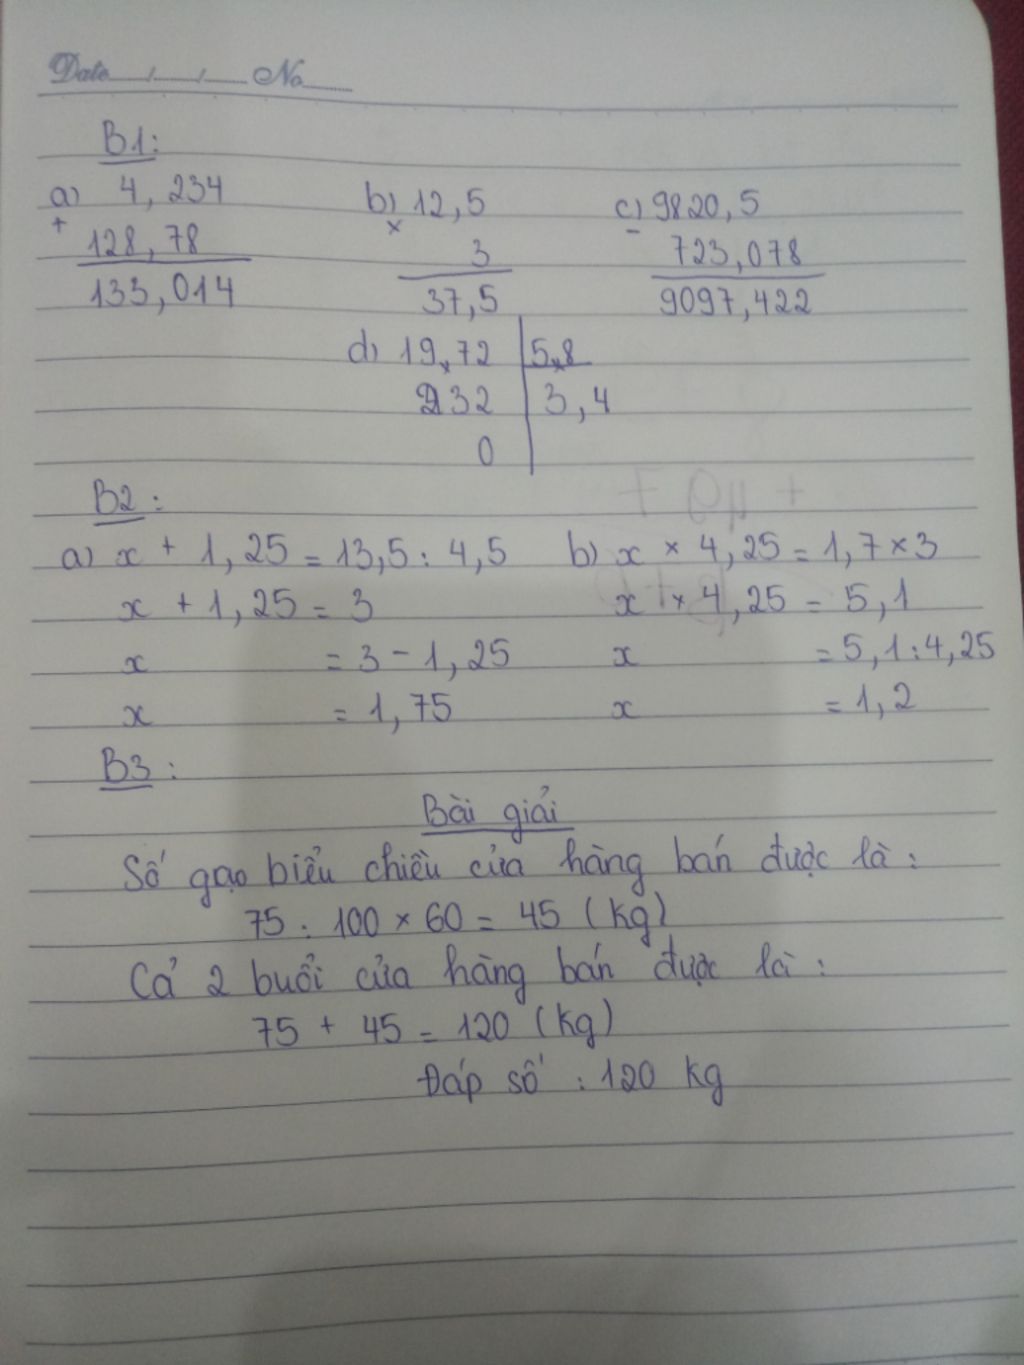 Date / / No
B1:
a) 4,234 b) 12,5 c) 9820,5
+ 128,78 × 3 - 723,078
133,014 37,5 9097,422
d) 19,72 5,8
232 3,4
0
B2:
a) x + 1,25 = 13,5 : 4,5 b) x × 4,25 = 1,7 × 3
x + 1,25 = 3 x × 4,25 = 5,1
x = 3 - 1,25 x = 5,1 : 4,25
x = 1,75 x = 1,2
B3:
Bài giải
Số gạo biểu chiều cửa hàng bán được là:
75 : 100 × 60 = 45 (kg)
Cả 2 buổi cửa hàng bán được là:
75 + 45 = 120 (kg)
Đáp số : 120 kg